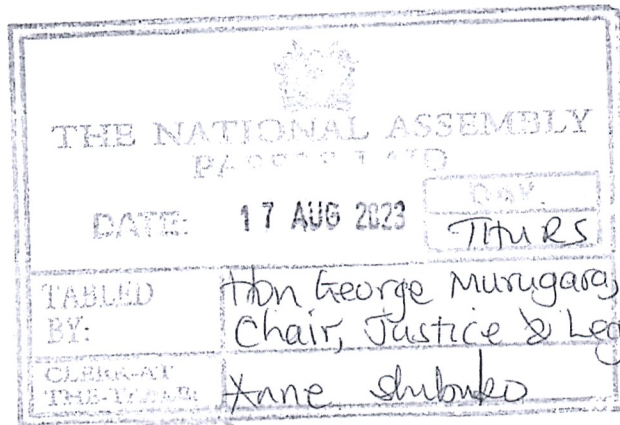 THE NATIONAL ASSEMBLY
PAPERS LAID
DATE: 17 AUG 2023
DAY.
THURS
TABLED BY:
Hon George Murugara,
Chair, Justice & Leg
CLERK-AT THE-TABLE:
Anne Shibuko